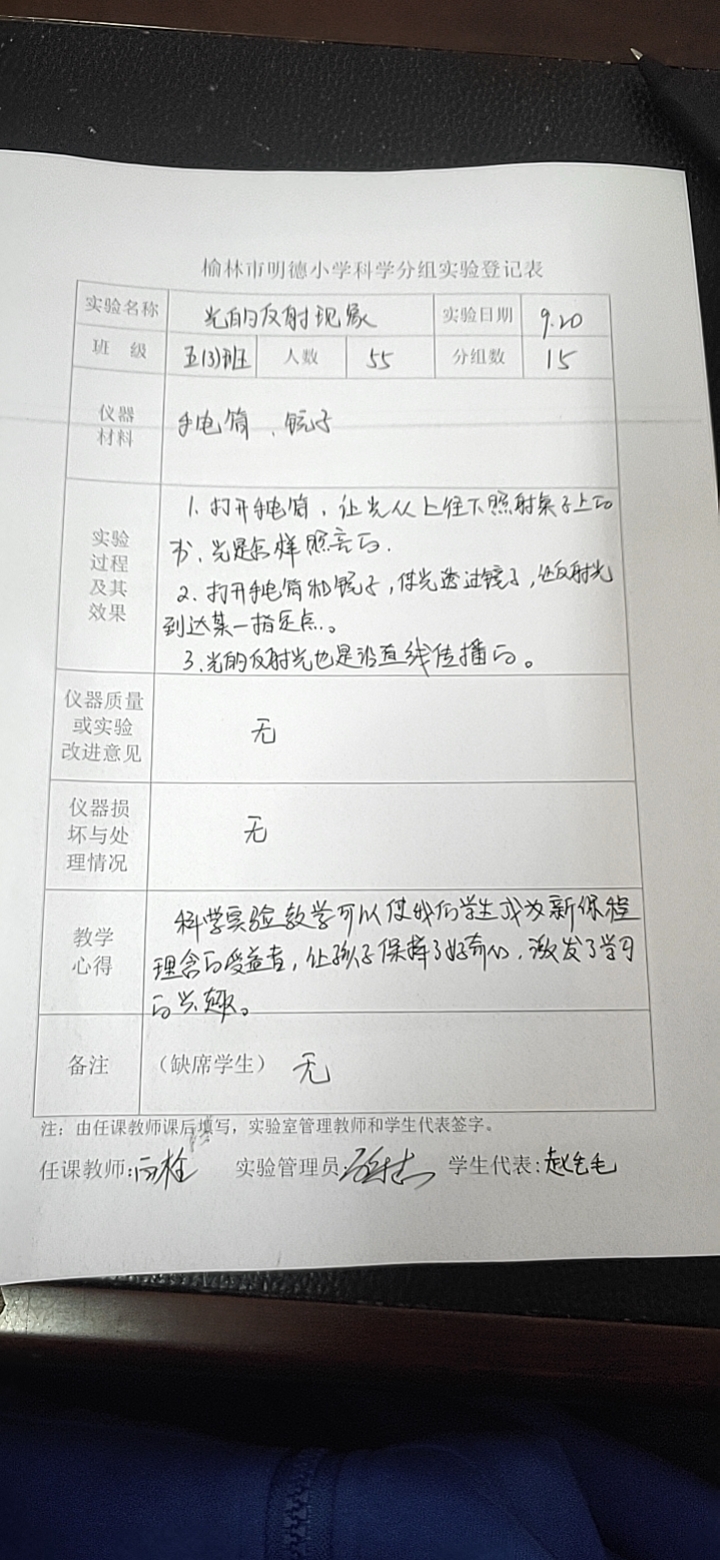 榆林市明德小学科学分组实验登记表
实验名称 光的反射现象 实验日期 9.20
班 级 五(3)班 人数 55 分组数 15
仪器
材料
手电筒、镜子
实验
过程
及其
效果
1. 打开手电筒，让光从上往下照射桌子上的
书、光是怎样照亮的.
2. 打开手电筒和镜子，使光透过镜子，还反射光
到达某一指定点。
3.光的反射光也是沿直线传播的。
仪器质量
或实验
改进意见
无
仪器损
坏与处
理情况
无
教学
心得
科学实验教学可以使我们学生成为新课程
理念的受益者，让孩子保持了好奇心，激发了学习
的兴趣。
备注 （缺席学生） 无
注：由任课教师课后填写，实验室管理教师和学生代表签字。
任课教师: 实验管理员: 学生代表: